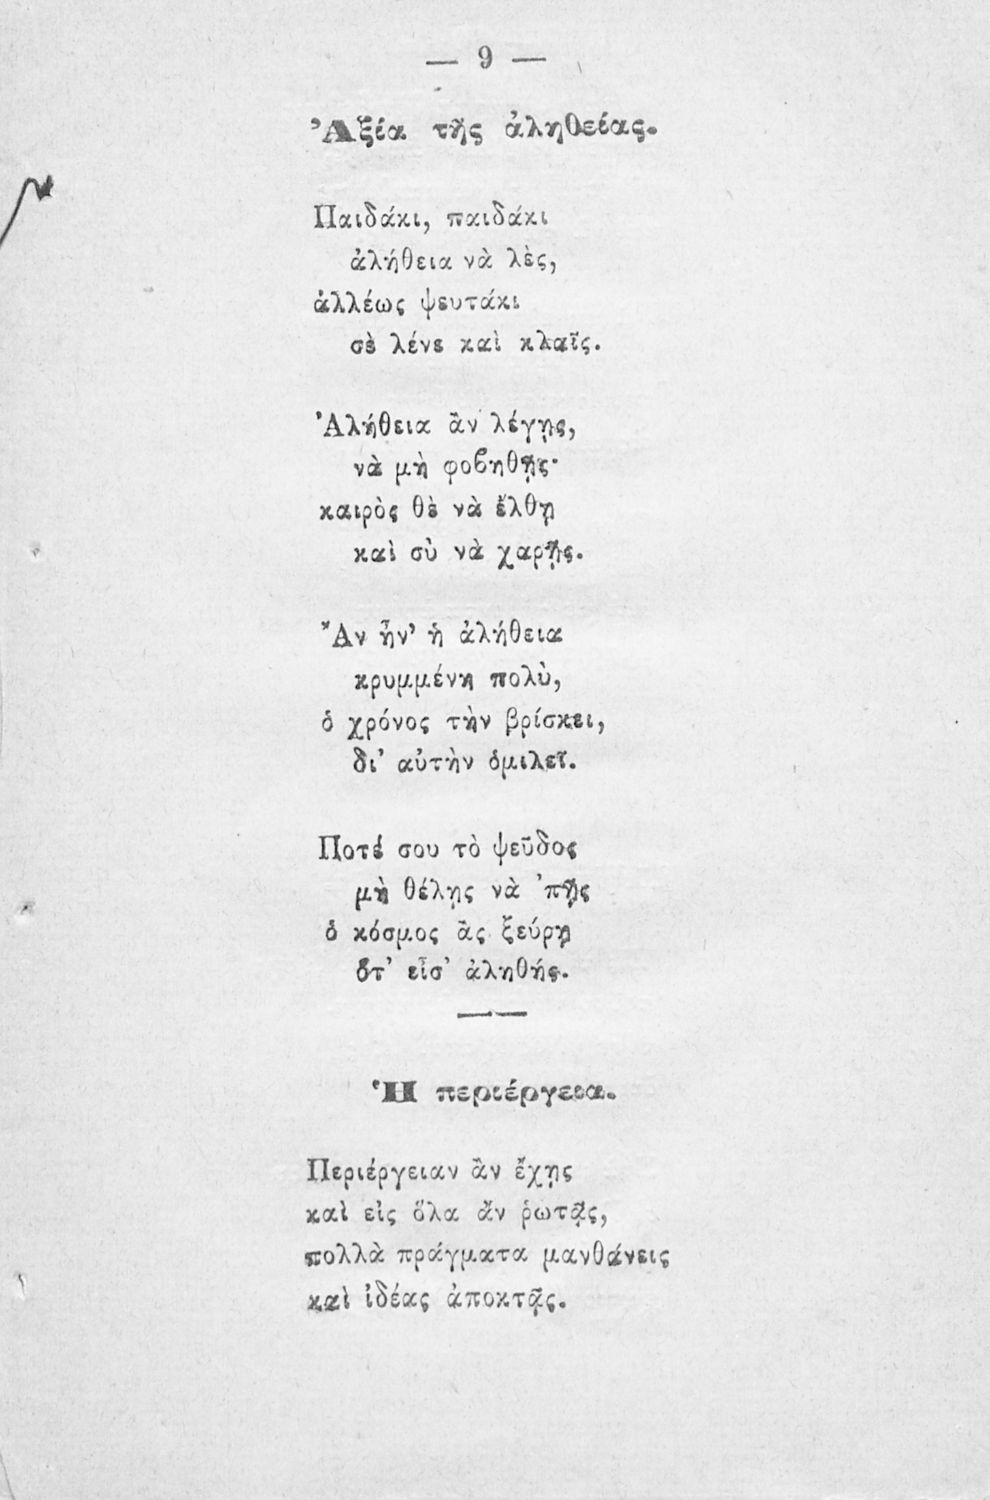 — 9 —
Ἀξία τῆς ἀληθείας.
Παιδάκι, παιδάκι
ἀλήθεια νὰ λὲς,
ἀλλέως ψευτάκι
σὲ λένε καὶ κλαῖς.
Ἀλήθεια ἂν λέγῃς,
νὰ μὴ φοβηθῇς·
καιρὸς θὲ νὰ ἔλθῃ
καὶ σὺ νὰ χαρῇς.
Ἂν ἦν' ἡ ἀλήθεια
κρυμμένη πολὺ,
ὁ χρόνος τὴν βρίσκει,
δι' αὐτὴν ὁμιλεῖ.
Ποτέ σου τὸ ψεῦδος
μὴ θέλῃς νὰ 'πῇς
ὁ κόσμος ἂς ξεύρῃ
ὅτ' εἶσ' ἀληθής.
Ἡ περιέργεια.
Περιέργειαν ἂν ἔχῃς
καὶ εἰς ὅλα ἂν ῥωτᾷς,
πολλὰ πράγματα μανθάνεις
καὶ ἰδέας ἀποκτᾷς.